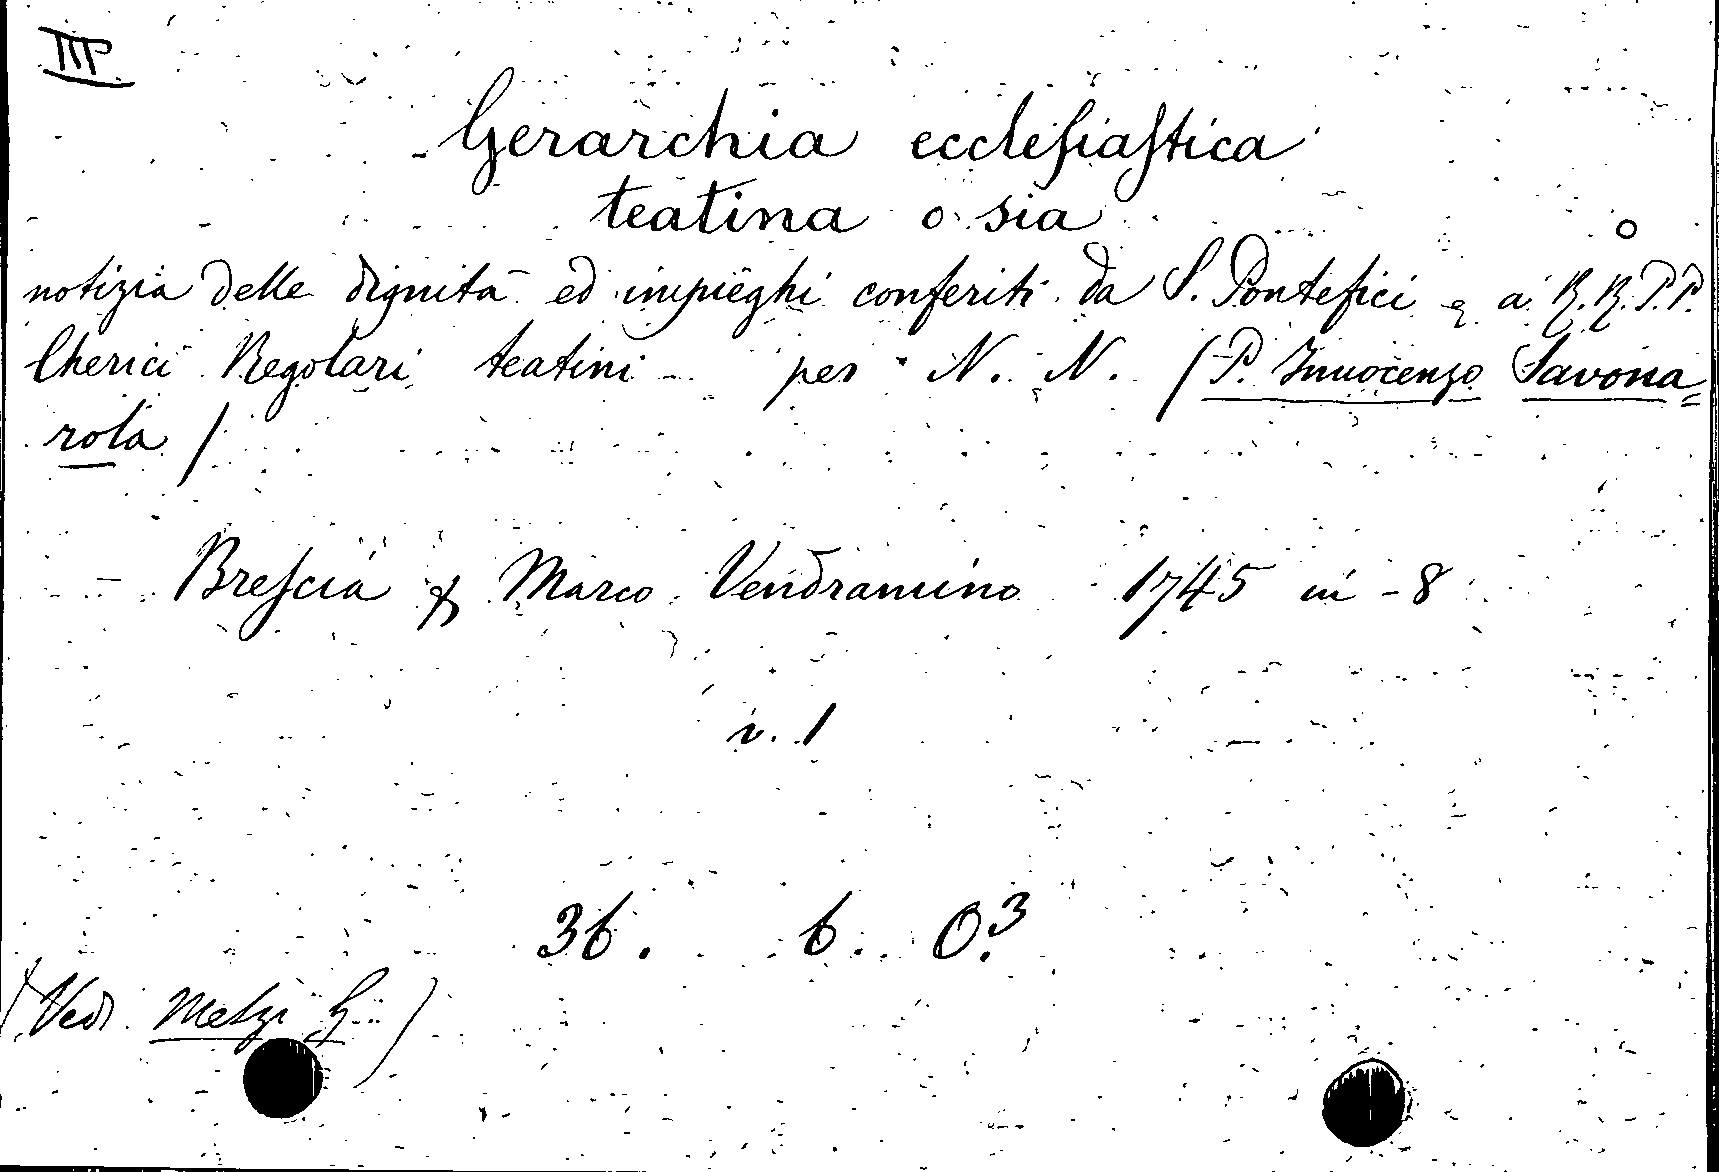 III
Gerarchia ecclesiastica
teatina o sia
notizia delle dignità ed impieghi conferiti da S. Pontefici a R.R.P.P.
Cherici Regolari teatini per N. N. (P. Innocenzo Savona=
rola)
Brescia Marco Vendramino 1745 in-8
v. 1
36. 6. O.3
(Vedi Melzi G)